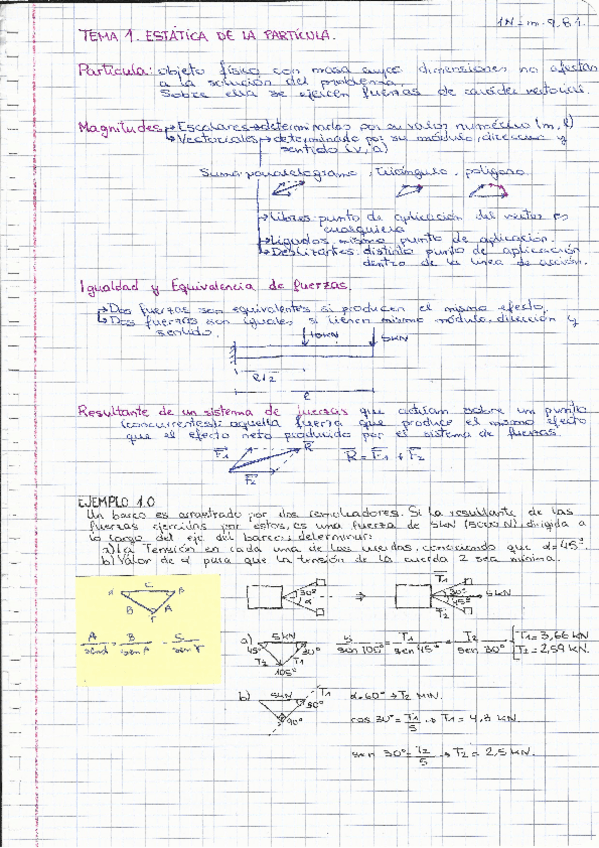 1N = m · 9,81
TEMA 1. ESTÁTICA DE LA PARTÍCULA.
Partícula: objeto físico con masa cuyas dimensiones no afectan
a la solución del problema.
Sobre ella se ejercen fuerzas de carácter vectorial.
Magnitudes → Escalares → determinadas por su valor numérico (m, t)
→ Vectoriales → determinado por su módulo, dirección y
sentido (v, a)
Suma paralelogramo, triángulo, polígono
→ Libres: punto de aplicación del vector es
cualquiera
→ Ligados: mismo punto de aplicación.
→ Deslizantes: distinto punto de aplicación
dentro de la línea de acción.
Igualdad y Equivalencia de fuerzas.
→ Dos fuerzas son equivalentes si producen el mismo efecto.
→ Dos fuerzas son iguales si tienen mismo módulo, dirección y
sentido.
10KN
5KN
l/2
l
Resultante de un sistema de fuerzas que actúan sobre un punto
(concurrentes): aquella fuerza que produce el mismo efecto
que el efecto neto producido por el sistema de fuerzas.
F1 R
F2
R = F1 + F2
EJEMPLO 1.0
Un barco es arrastrado por dos remolcadores. Si la resultante de las
fuerzas ejercidas por estos, es una fuerza de 5kN (5000 N) dirigida a
lo largo del eje del barco, determinar:
a) La Tensión en cada una de las cuerdas, conociendo que α=45°
b) Valor de α para que la tensión de la cuerda 2 sea mínima.
α C β
B A
γ
A/sen α = B/sen β = C/sen γ
30°
α
⇒
T1
30°
45°
5KN
T2
a)
5 KN
45° 30°
T2 T1
105°
5/sen 105° = T1/sen 45° = T2/sen 30°
T1 = 3,66 KN
T2 = 2,59 KN
b)
5KN T1
30°
90°
α=60° → T2 MIN.
cos 30° = T1/5 → T1 = 4,3 KN.
sen 30° = T2/5 → T2 = 2,5 KN.